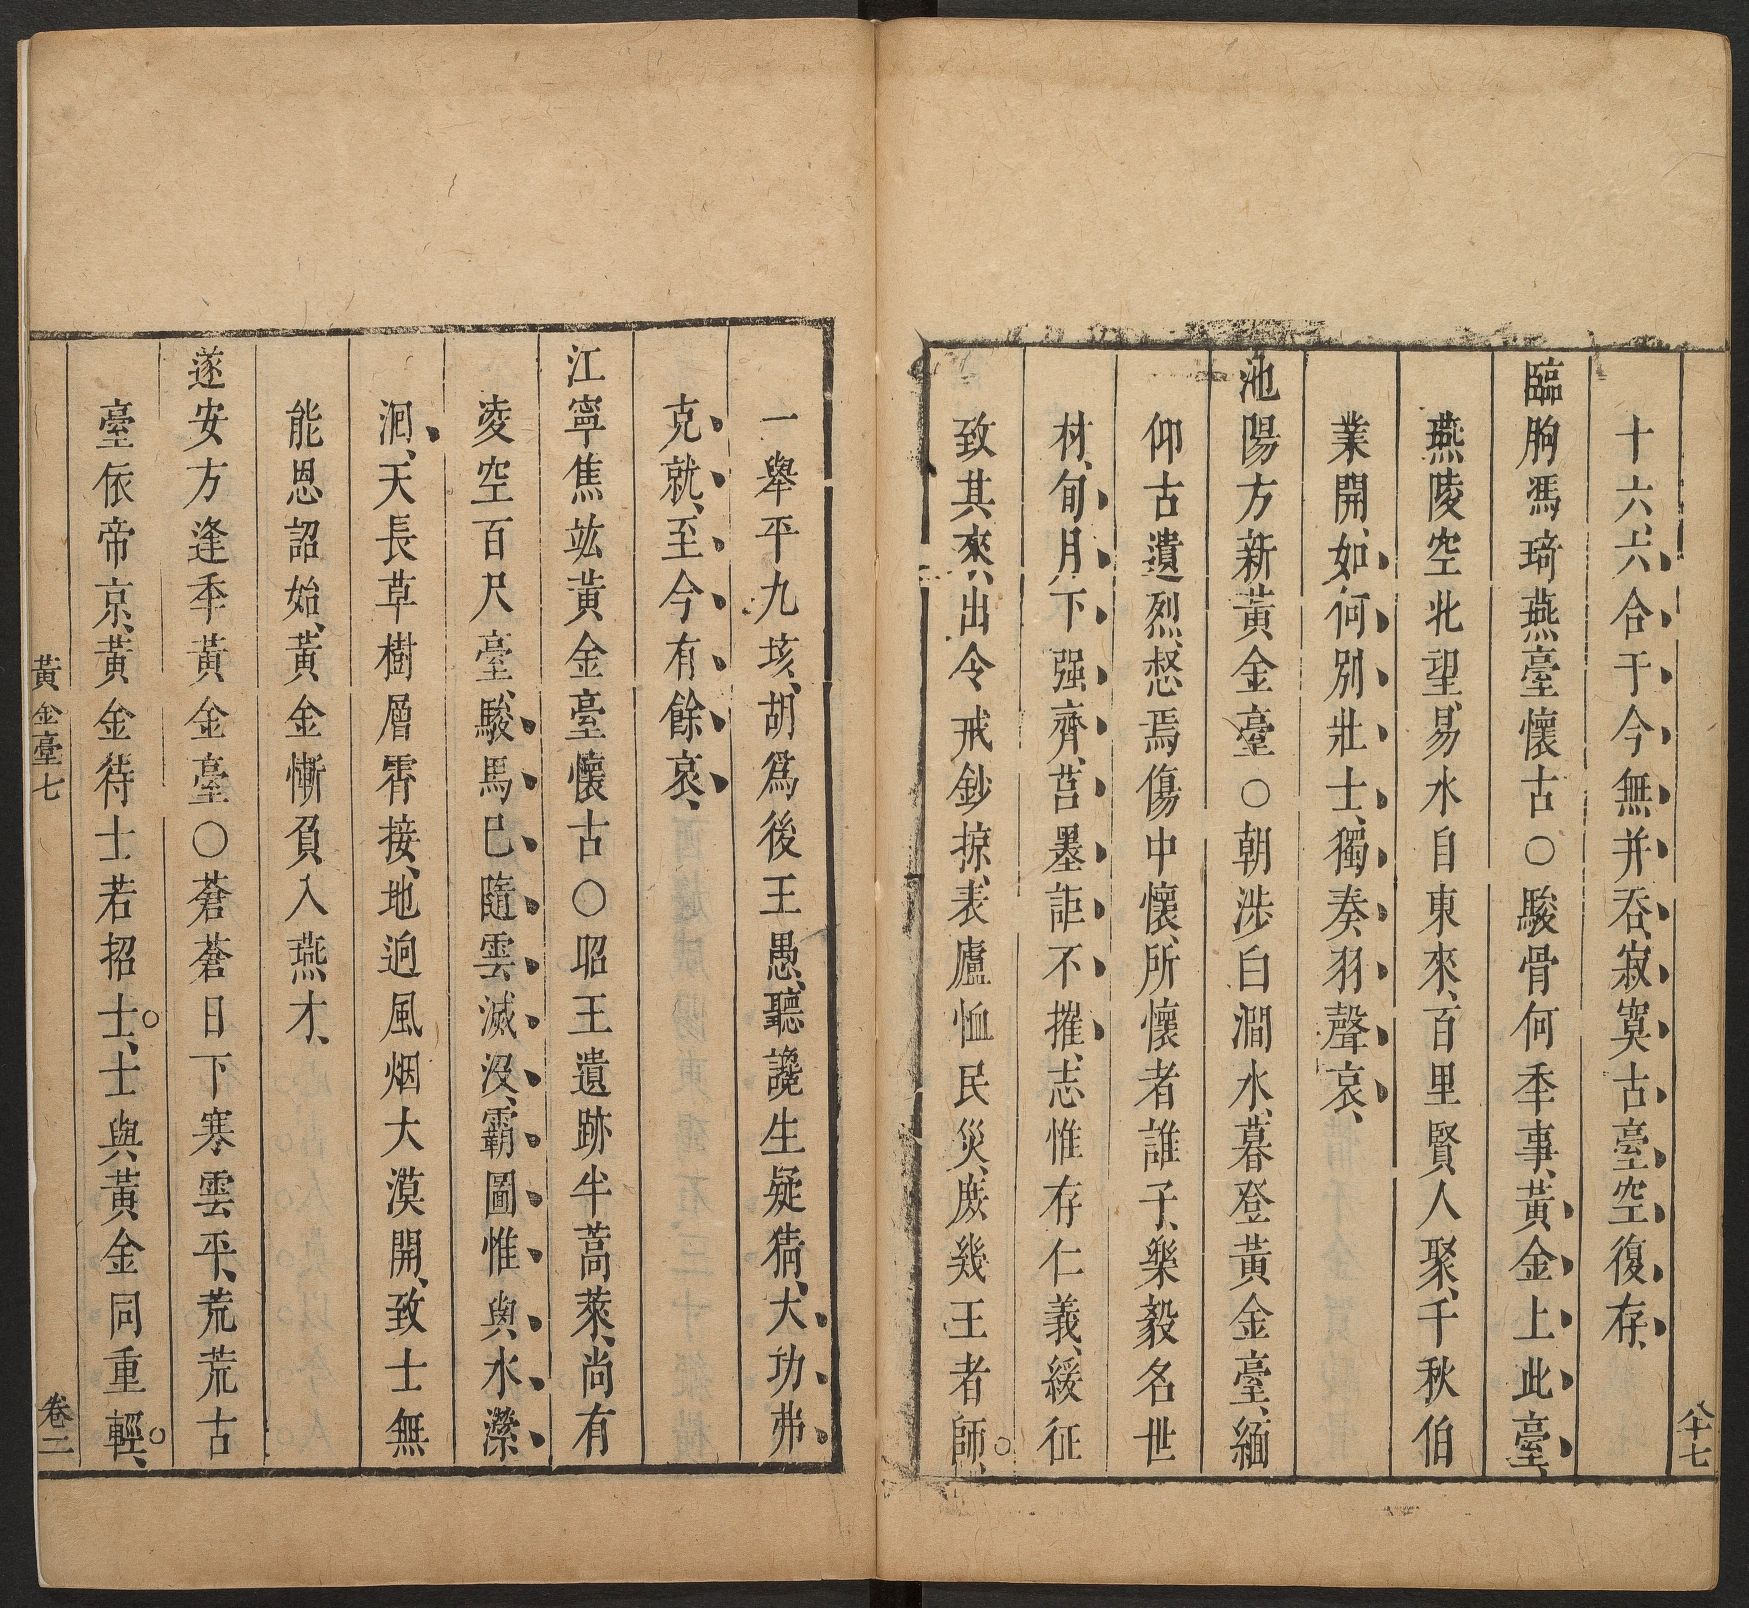 十六六合于今無并吞寂寞古臺空復存
臨朐馮琦燕臺懷古○駿骨何季事黃金上此臺
燕陵空北望易水自東來百里賢人聚千秋伯
業開如何別壯士獨奏羽聲哀
池陽方新黃金臺○朝涉白澗水暮登黃金臺緬
仰古遺烈惄焉傷中懷所懷者誰子樂毅名世
材旬月下强齊莒墨詎不摧志惟存仁義緩征
致其來出令戒鈔掠表廬恤民災庶幾王者師
八十七
一舉平九垓胡爲後王愚聽讒生疑猜大功弗
克就至今有餘哀
江寧焦竑黃金臺懷古○昭王遺跡半蒿萊尚有
凌空百尺臺駿馬已隨雲滅沒霸圖惟與水濚
洄天長草樹層霄接地逈風烟大漠開致士無
能恩詔始黃金慚負入燕才
遂安方逢季黃金臺○蒼蒼日下寒雲平荒荒古
臺依帝京黃金待士若招士士與黃金同重輕
黃金臺七
卷二